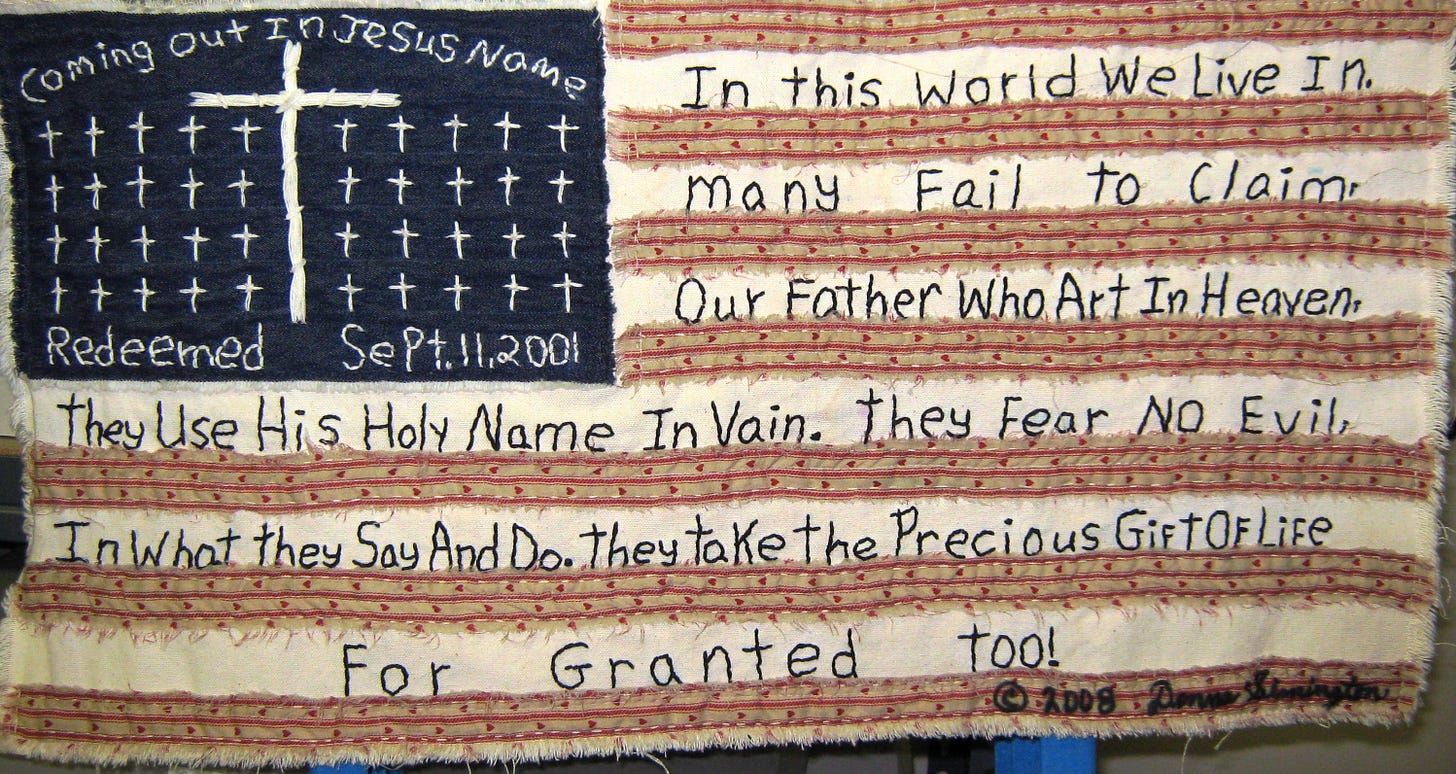 Coming out In Jesus Name
Redeemed Sept.11,2001
In this World We Live In.
many Fail to Claim.
Our Father Who Art In Heaven.
they Use His Holy Name In Vain. They Fear No Evil,
In What they Say And Do. they take the Precious Gift Of Life
For Granted too!
© 2008 Donna Simington